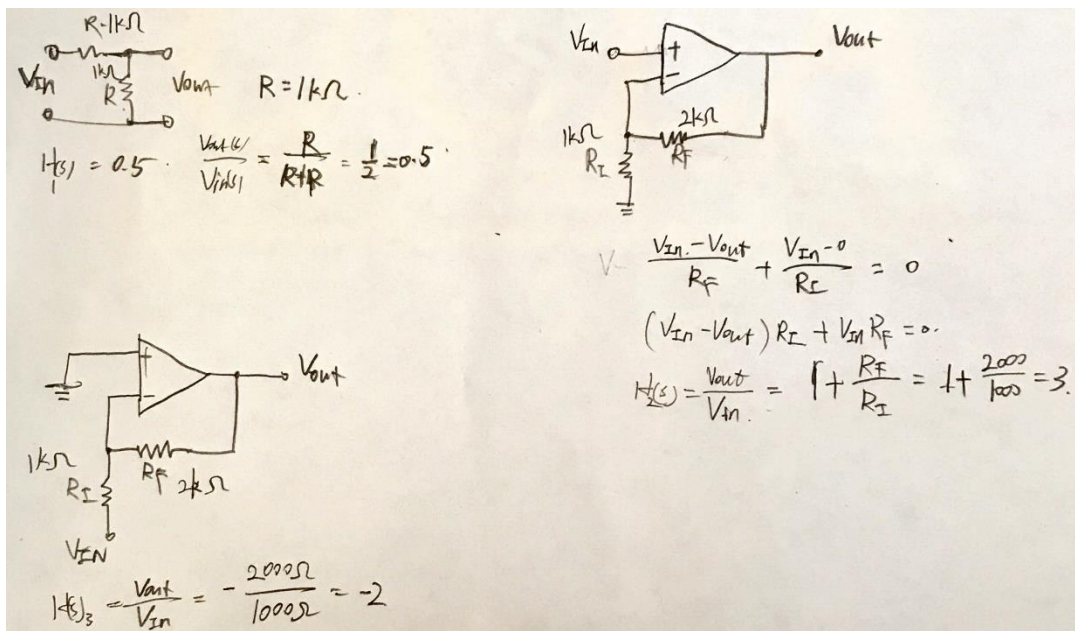 R-1kΩ
VIn
1kΩ
R
Vout
R=1kΩ
H1(s) = 0.5. Vout(s)/Vin(s) = R/(R+R) = 1/2 = 0.5
VIn
+
-
Vout
1kΩ
RI
2kΩ
RF
V- (VIn-Vout)/RF + (VIn-0)/RI = 0
(VIn-Vout)RI + VIn RF = 0.
H2(s) = Vout/VIn. = 1 + RF/RI = 1 + 2000/1000 = 3.
+
-
Vout
1kΩ
RI
RF 2kΩ
VIN
H(s)3 = Vout/VIn = - 2000Ω/1000Ω = -2